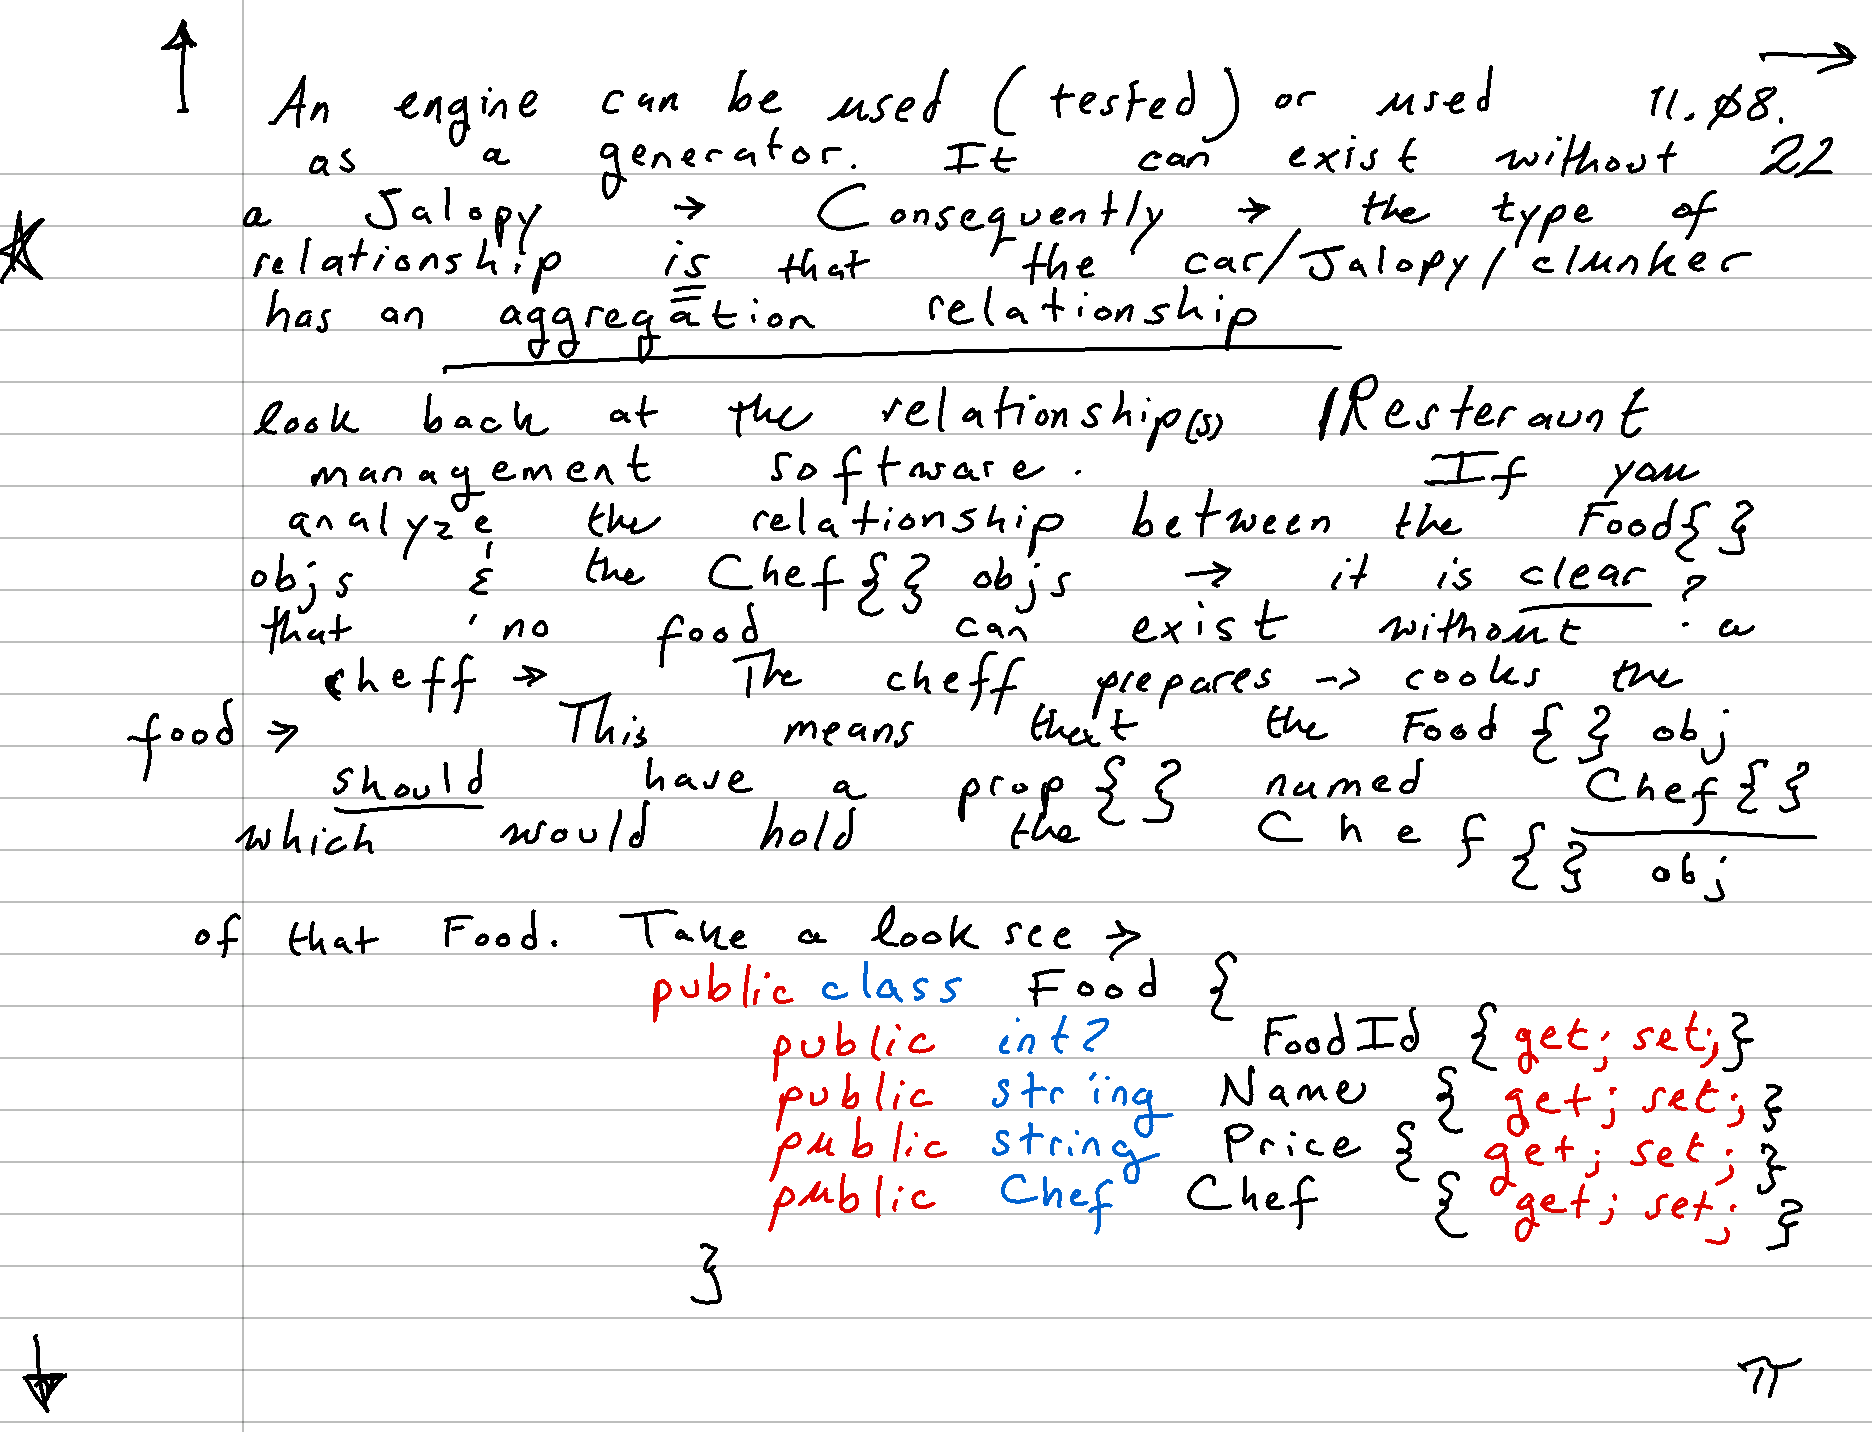 An engine can be used (tested) or used 11.Ø8.
as a generator. It can exist without 22
a Jalopy → Consequently → the type of
relationship is that the car/Jalopy/clunker
has an aggregation relationship
look back at the relationship(s) Resteraunt
management software. If you
analyze the relationship between the Food{}
objs & the Chef{} objs → it is clear ?
that no food can exist without a
cheff → The cheff prepares → cooks the
food → This means that the Food{} obj
should have a prop{} named Chef{}
which would hold the Chef{} obj
of that Food. Take a look see →
public class Food {
public int? FoodId {get; set;}
public string Name {get; set;}
public string Price {get; set;}
public Chef Chef {get; set;}
}
π